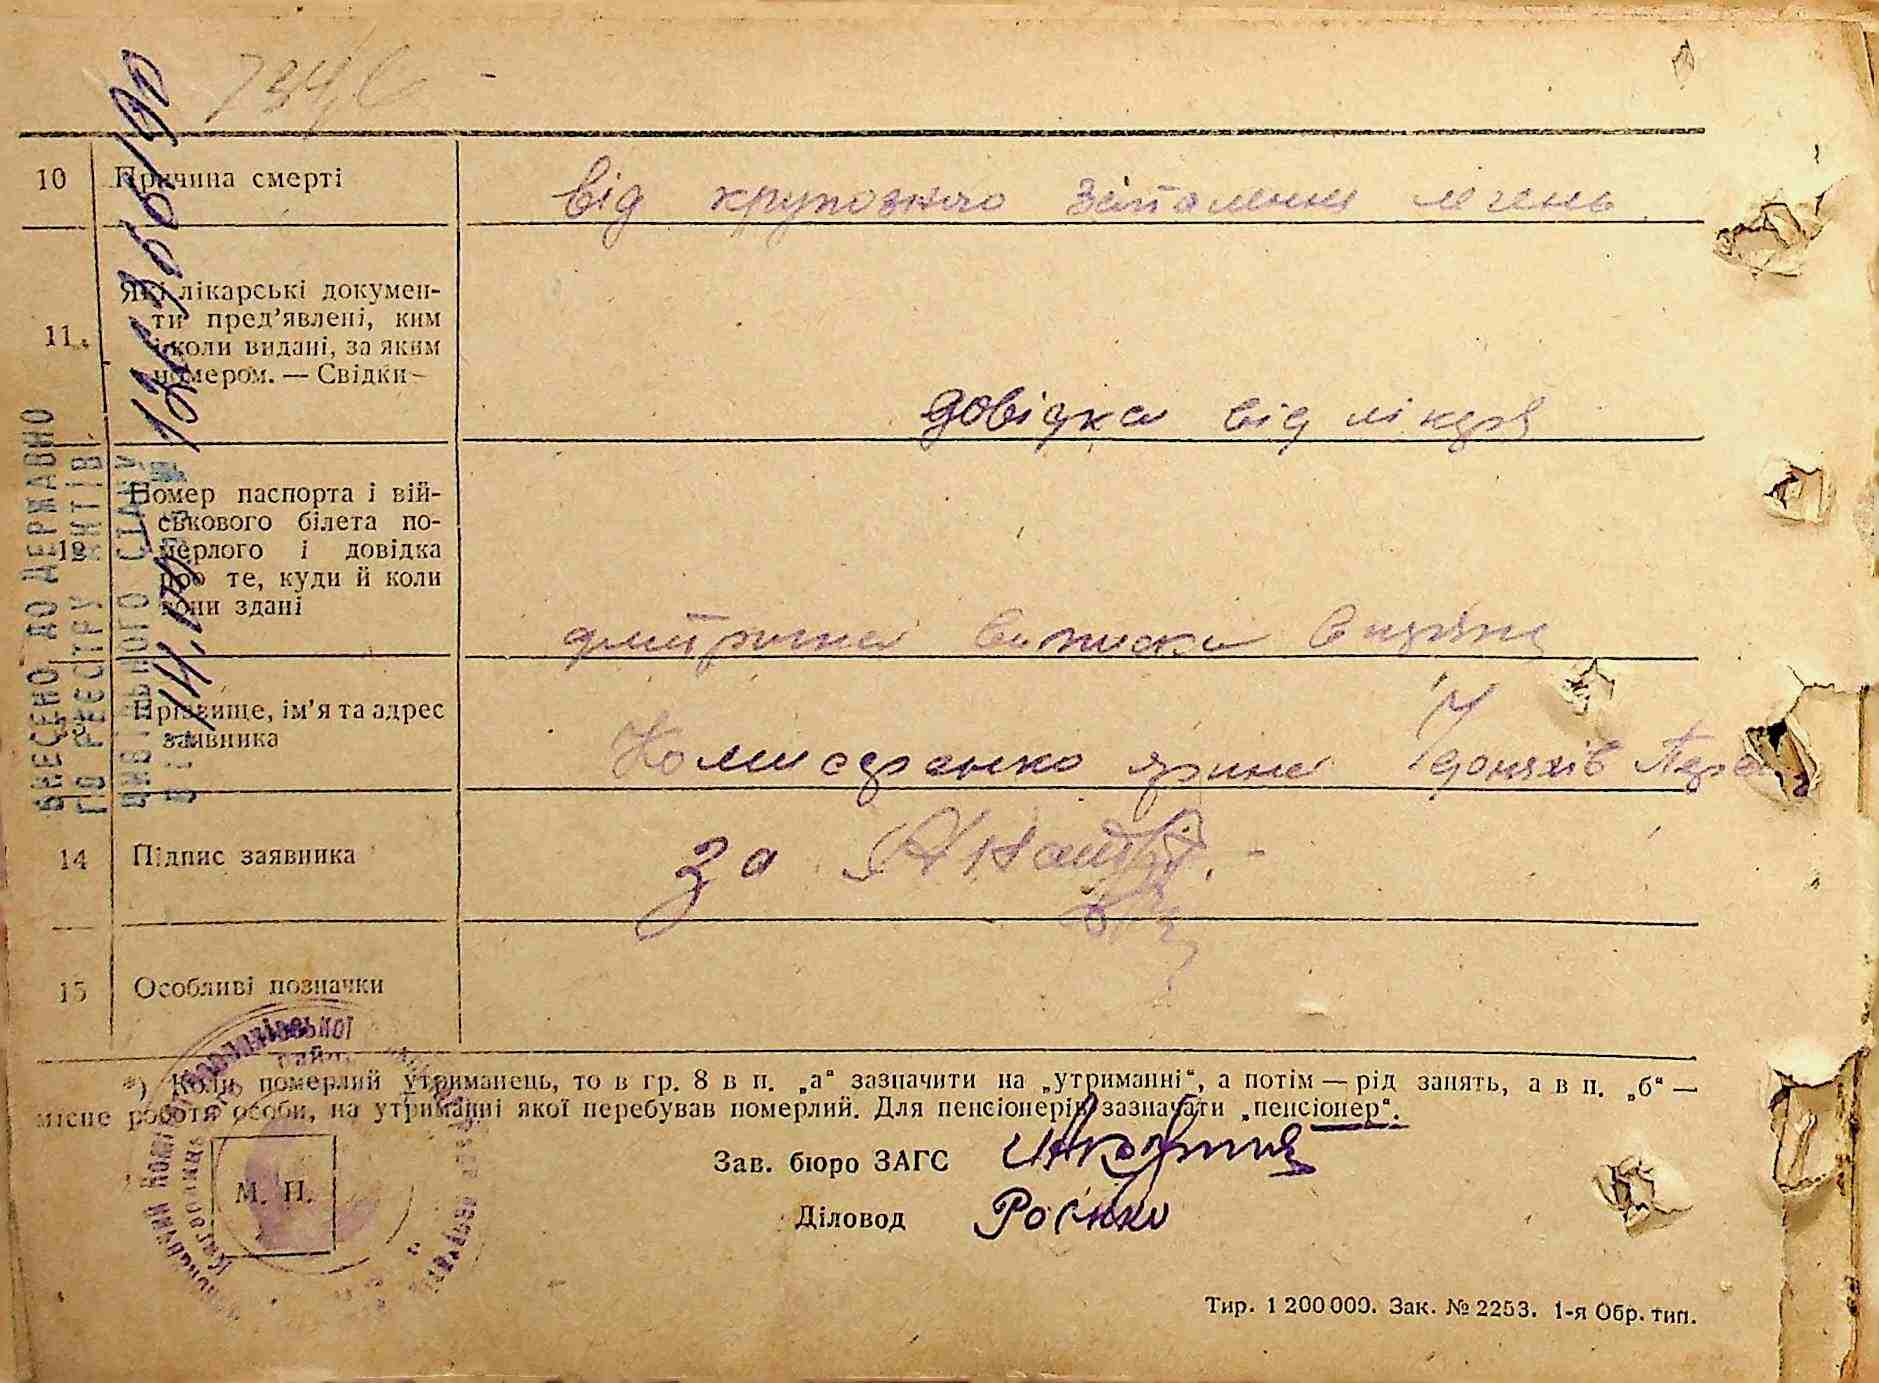 734,6
10 Причина смерті від крупозного запалення легень
11. Які лікарські докумен-
ти пред’явлені, ким
і коли видані, за яким
номером. — Свідки —
довідка від лікаря
12 Номер паспорта і вій-
ськового білета по-
мерлого і довідка
про те, куди й коли
вони здані
метрична виписка
Прізвище, ім’я та адрес
заявника
Комисаренко Ярина
14 Підпис заявника
за
15 Особливі позначки
*) Коли померлий утриманець, то в гр. 8 в п. „а“ зазначити на „утриманні“, а потім — рід занять, а в п. „б“ —
місце роботи особи, на утриманні якої перебував померлий. Для пенсіонерів зазначати „пенсіонер“.
Зав. бюро ЗАГС
Діловод
М. П.
Тир. 1 200 000. Зак. № 2253. 1-я Обр. тип.
ВНЕСЕНО ДО ДЕРЖАВНО
ГО РЕЄСТРУ АКТІВ
ЦИВІЛЬНОГО СТАНУ